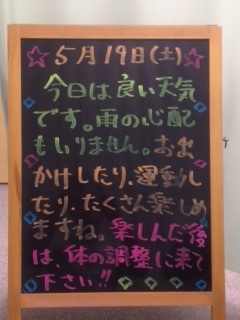 ☆5月19日(土)☆
今日は良い天気
です。雨の心配
もいりません。おお
かけしたり、運動し
たり、たくさん楽しめ
ますね。楽しんだ後
は、体の調整に来て
下さい!!